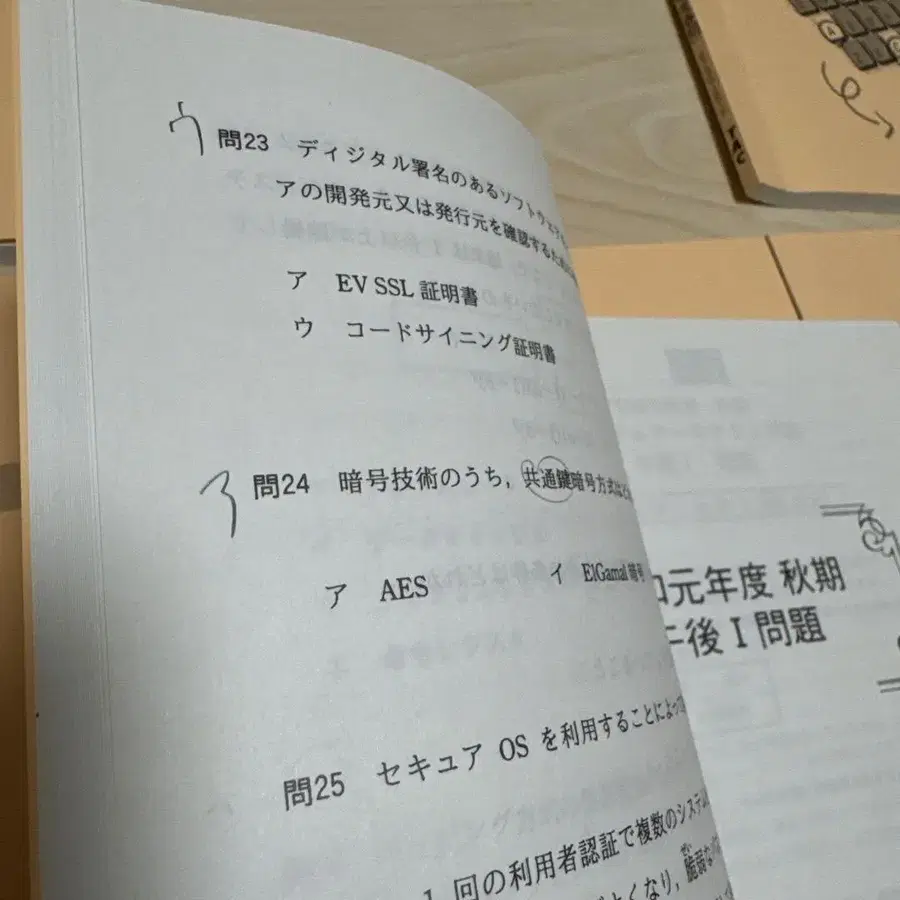 ウ
問23 ディジタル署名のあるソフトウェア
アの開発元又は発行元を確認するため
ア EV SSL 証明書
ウ コードサイニング証明書
ア
問24 暗号技術のうち，共通鍵暗号方式はど
ア AES イ ElGamal 暗号
問25 セキュア OS を利用することによって
1 回の利用者認証で複数のシステム
くなり，脆弱な
ぜい
元年度 秋期
後 I 問題